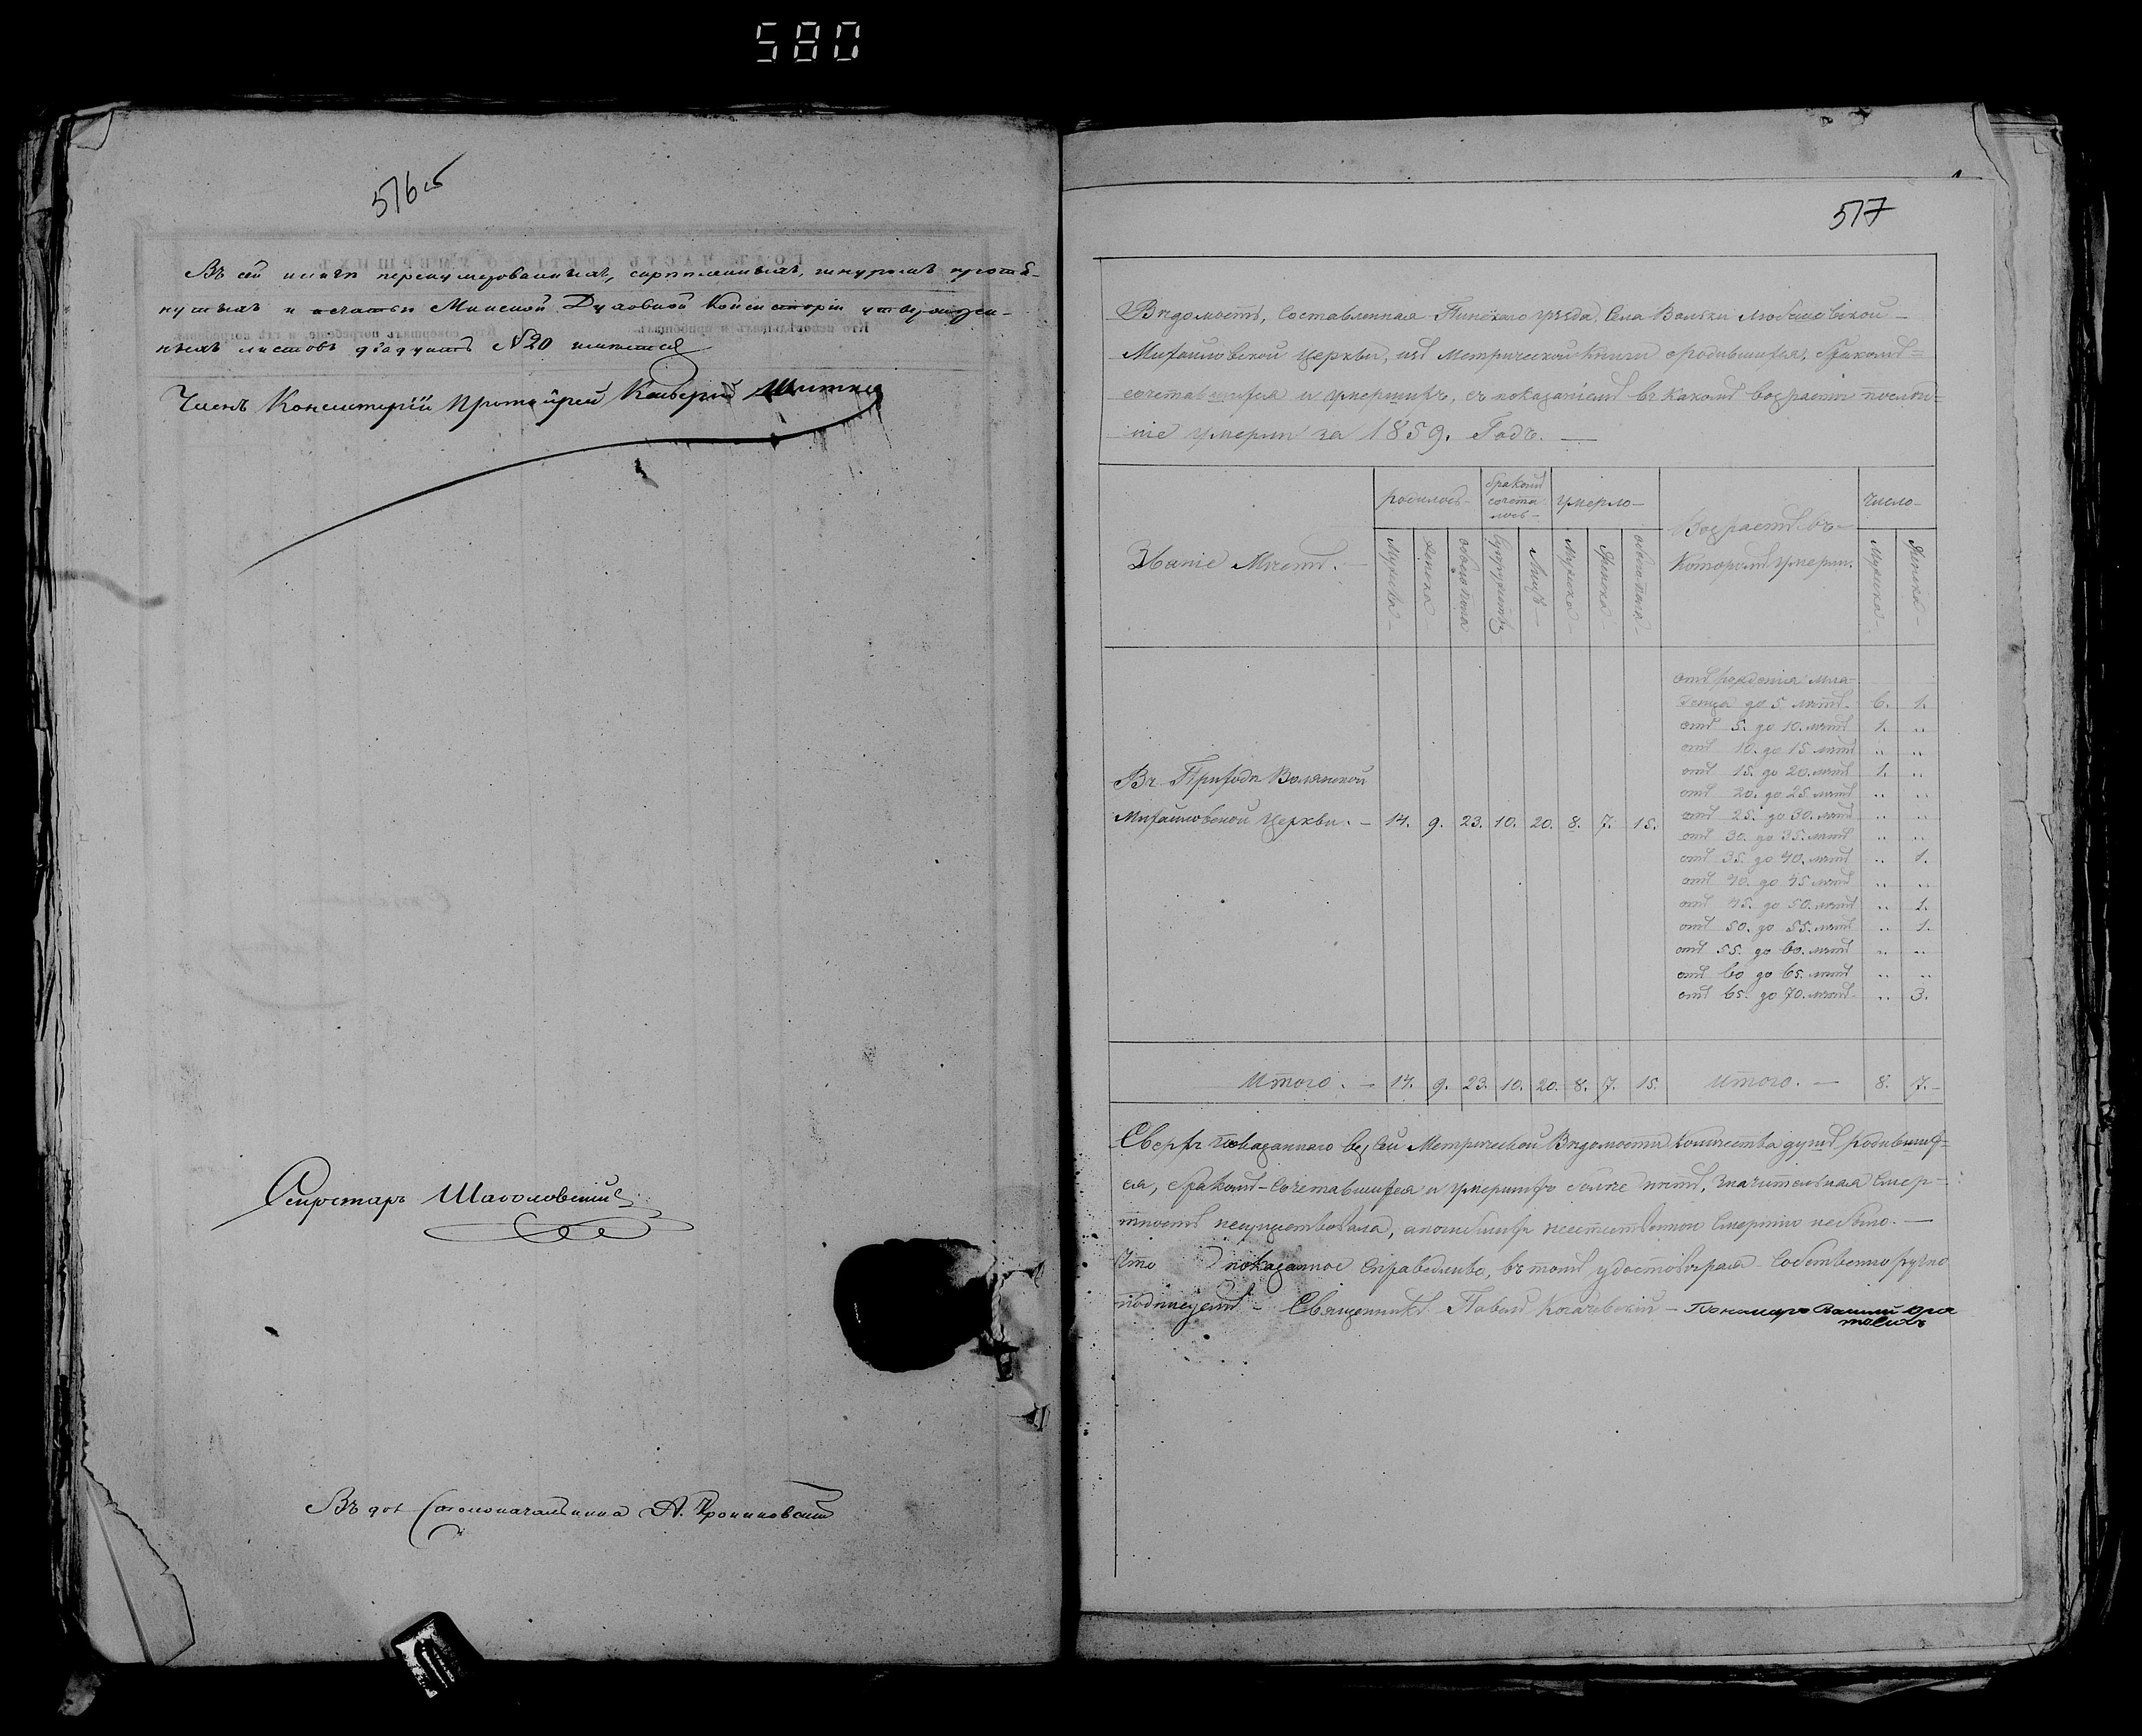 580
516 об
Въ сей книгѣ перенумерованныхъ, скрѣпленныхъ, шнуромъ протя-
нутыхъ и печатью Минской Духовной Консисторіи утвержден-
ныхъ листовъ двадцать №20 имѣется
Членъ Консисторіи Протоіерей
Секретарь
Въ дол Столоначальника А.
517
Вѣдомость, Составленная Пинскаго уѣзда, Села Вольки
Михайловской Церкви, изъ Метрической Книги о родившихся, бракомъ=
сочетавшихся и умершихъ, съ показаніемъ въ какомъ возрастѣ послѣд=
ніе умерли за 1859. Годъ. —
Званіе Мѣстъ. —
родилось —
бракомъ
сочета
лось —
умерло —
Возрастъ въ —
Которомъ умерли.
Число —
Мужеска —
женска
обоего пола
Супружествъ
Лицъ —
Мужеска —
Женска —
обоего пола —
Мужеска —
Женска —
отъ рожденія мла-
денца до 5 лѣтъ. 6. 1.
отъ 5. до 10. лѣтъ 1. „
отъ 10. до 15 лѣтъ „ „
отъ 15. до 20. лѣтъ 1. „
отъ 20. до 25 лѣтъ „ „
отъ 25. до 30. лѣтъ „ „
отъ 30. до 35. лѣтъ „ „
отъ 35. до 40. лѣтъ „ 1.
отъ 40. до 45 лѣтъ „ „
отъ 45. до 50. лѣтъ „ 1.
отъ 50. до 55. лѣтъ „ 1.
отъ 55. до 60. лѣтъ „ „
отъ 60 до 65. лѣтъ „ „
отъ 65. до 70. лѣтъ „ 3.
Въ Приходѣ Волянской
Михайловской Церкви. — 14. 9. 23. 10. 20. 8. 7. 15.
Итого. — 14. 9. 23. 10. 20. 8. 7. 15. Итого. — 8. 7. —
Сверхъ показаннаго въ сей Метрической Вѣдомости Количества душъ родивших=
ся, бракомъ-Сочетавшихся и умершихъ болѣе нѣтъ, Значительная Смер=
тность несуществовала, апогибшихъ неестественною Смертію небыло. —
Что показанное Справедливо, въ томъ удостовѣряя Собственноручно
подписуемъ — Священникъ Павелъ — Пономарь